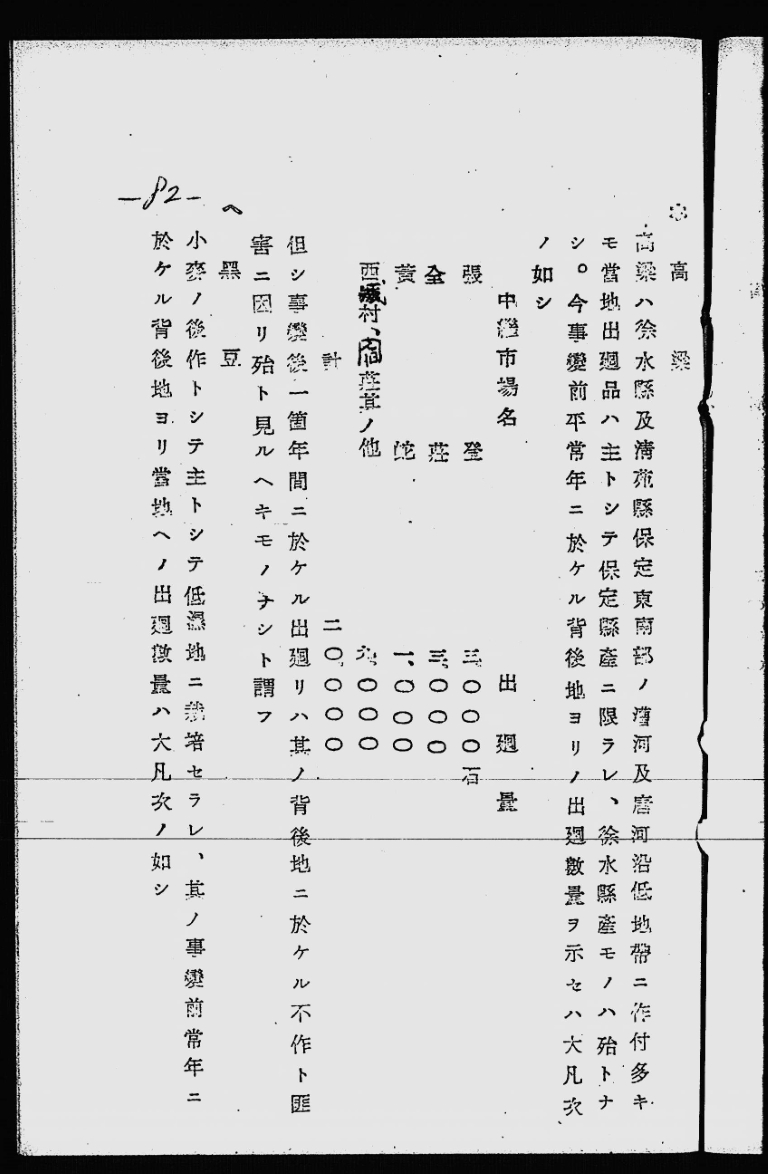 高粱
高粱ハ徐水縣及淸苑縣保定東南部ノ漕河及唐河沿低地帶ニ作付多キ
モ當地出廻品ハ主トシテ保定縣產ニ限ラレ、徐水縣產モノハ殆トナ
シ。今事變前平常年ニ於ケル背後地ヨリノ出廻數量ヲ示セハ大凡次
ノ如シ
中繼市場名 出廻量
張登 三、〇〇〇石
全莊 三、〇〇〇
黃陀 一、〇〇〇
西城村、閻莊其ノ他 九、〇〇〇
計 二〇、〇〇〇
但シ事變後一箇年間ニ於ケル出廻リハ其ノ背後地ニ於ケル不作ト匪
害ニ因リ殆ト見ルヘキモノナシト謂フ
ヘ 黑豆
小麥ノ後作トシテ主トシテ低濕地ニ栽培セラレ、其ノ事變前常年ニ
於ケル背後地ヨリ當地ヘノ出廻數量ハ大凡次ノ如シ
—82—